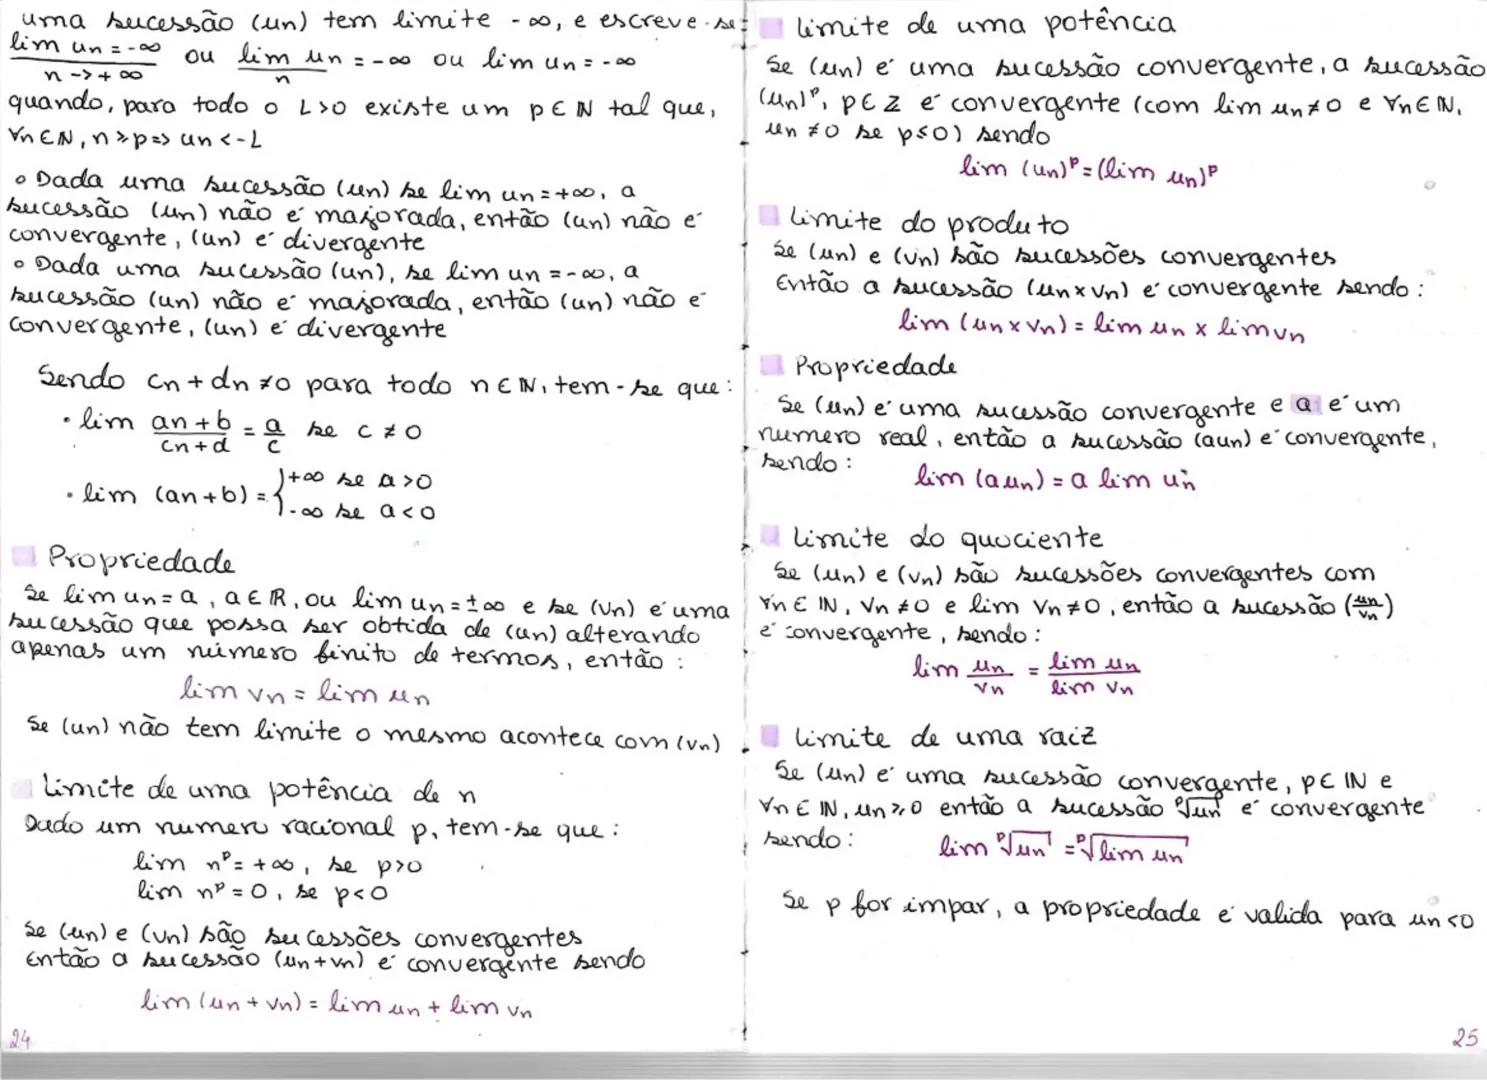 uma sucessão (un) tem limite -∞, e escreve-se:
lim un = -∞ ou lim un = -∞ ou lim un = -∞
n->+∞ n
quando, para todo o L>0 existe um p∈ℕ tal que,
∀n∈ℕ, n≥p=> un<-L
• Dada uma sucessão (un) se lim un=+∞, a
sucessão (un) não é majorada, então (un) não é
convergente, (un) é divergente
• Dada uma sucessão (un), se lim un=-∞, a
sucessão (un) não é majorada, então (un) não é
convergente, (un) é divergente
Sendo cn+dn≠0 para todo n∈ℕ, tem-se que:
• lim (an+b)/(cn+d) = a/c se c≠0
• lim (an+b) = { +∞ se a>0
-∞ se a<0
Propriedade
Se lim un=a, a∈ℝ, ou lim un=±∞ e se (vn) é uma
sucessão que possa ser obtida de (un) alterando
apenas um número finito de termos, então:
lim vn = lim un
Se (un) não tem limite o mesmo acontece com (vn)
Limite de uma potência de n
Dado um numero racional p, tem-se que:
lim nᵖ=+∞, se p>0
lim nᵖ=0, se p<0
Se (un) e (vn) são sucessões convergentes
Então a sucessão (un+vn) é convergente sendo
lim (un+vn) = lim un + lim vn
24
Limite de uma potência
Se (un) é uma sucessão convergente, a sucessão
(un)ᵖ, p∈Z é convergente (com lim un≠0 e ∀n∈ℕ,
un≠0 se p≤0) sendo
lim (un)ᵖ=(lim un)ᵖ
Limite do produto
Se (un) e (vn) são sucessões convergentes
Então a sucessão (un×vn) é convergente sendo:
lim (un×vn) = lim un × lim vn
Propriedade
Se (un) é uma sucessão convergente e a é um
numero real, então a sucessão (aun) é convergente,
sendo: lim (aun) = a lim un
Limite do quociente
Se (un) e (vn) são sucessões convergentes com
∀n∈ℕ, vn≠0 e lim vn≠0, então a sucessão (un/vn)
é convergente, sendo:
lim un/vn = lim un/lim vn
Limite de uma raiz
Se (un) é uma sucessão convergente, p∈ℕ e
∀n∈ℕ, un≥0 então a sucessão ᵖ√un é convergente
sendo: lim ᵖ√un = ᵖ√lim un
Se p for impar, a propriedade é valida para un<0
25